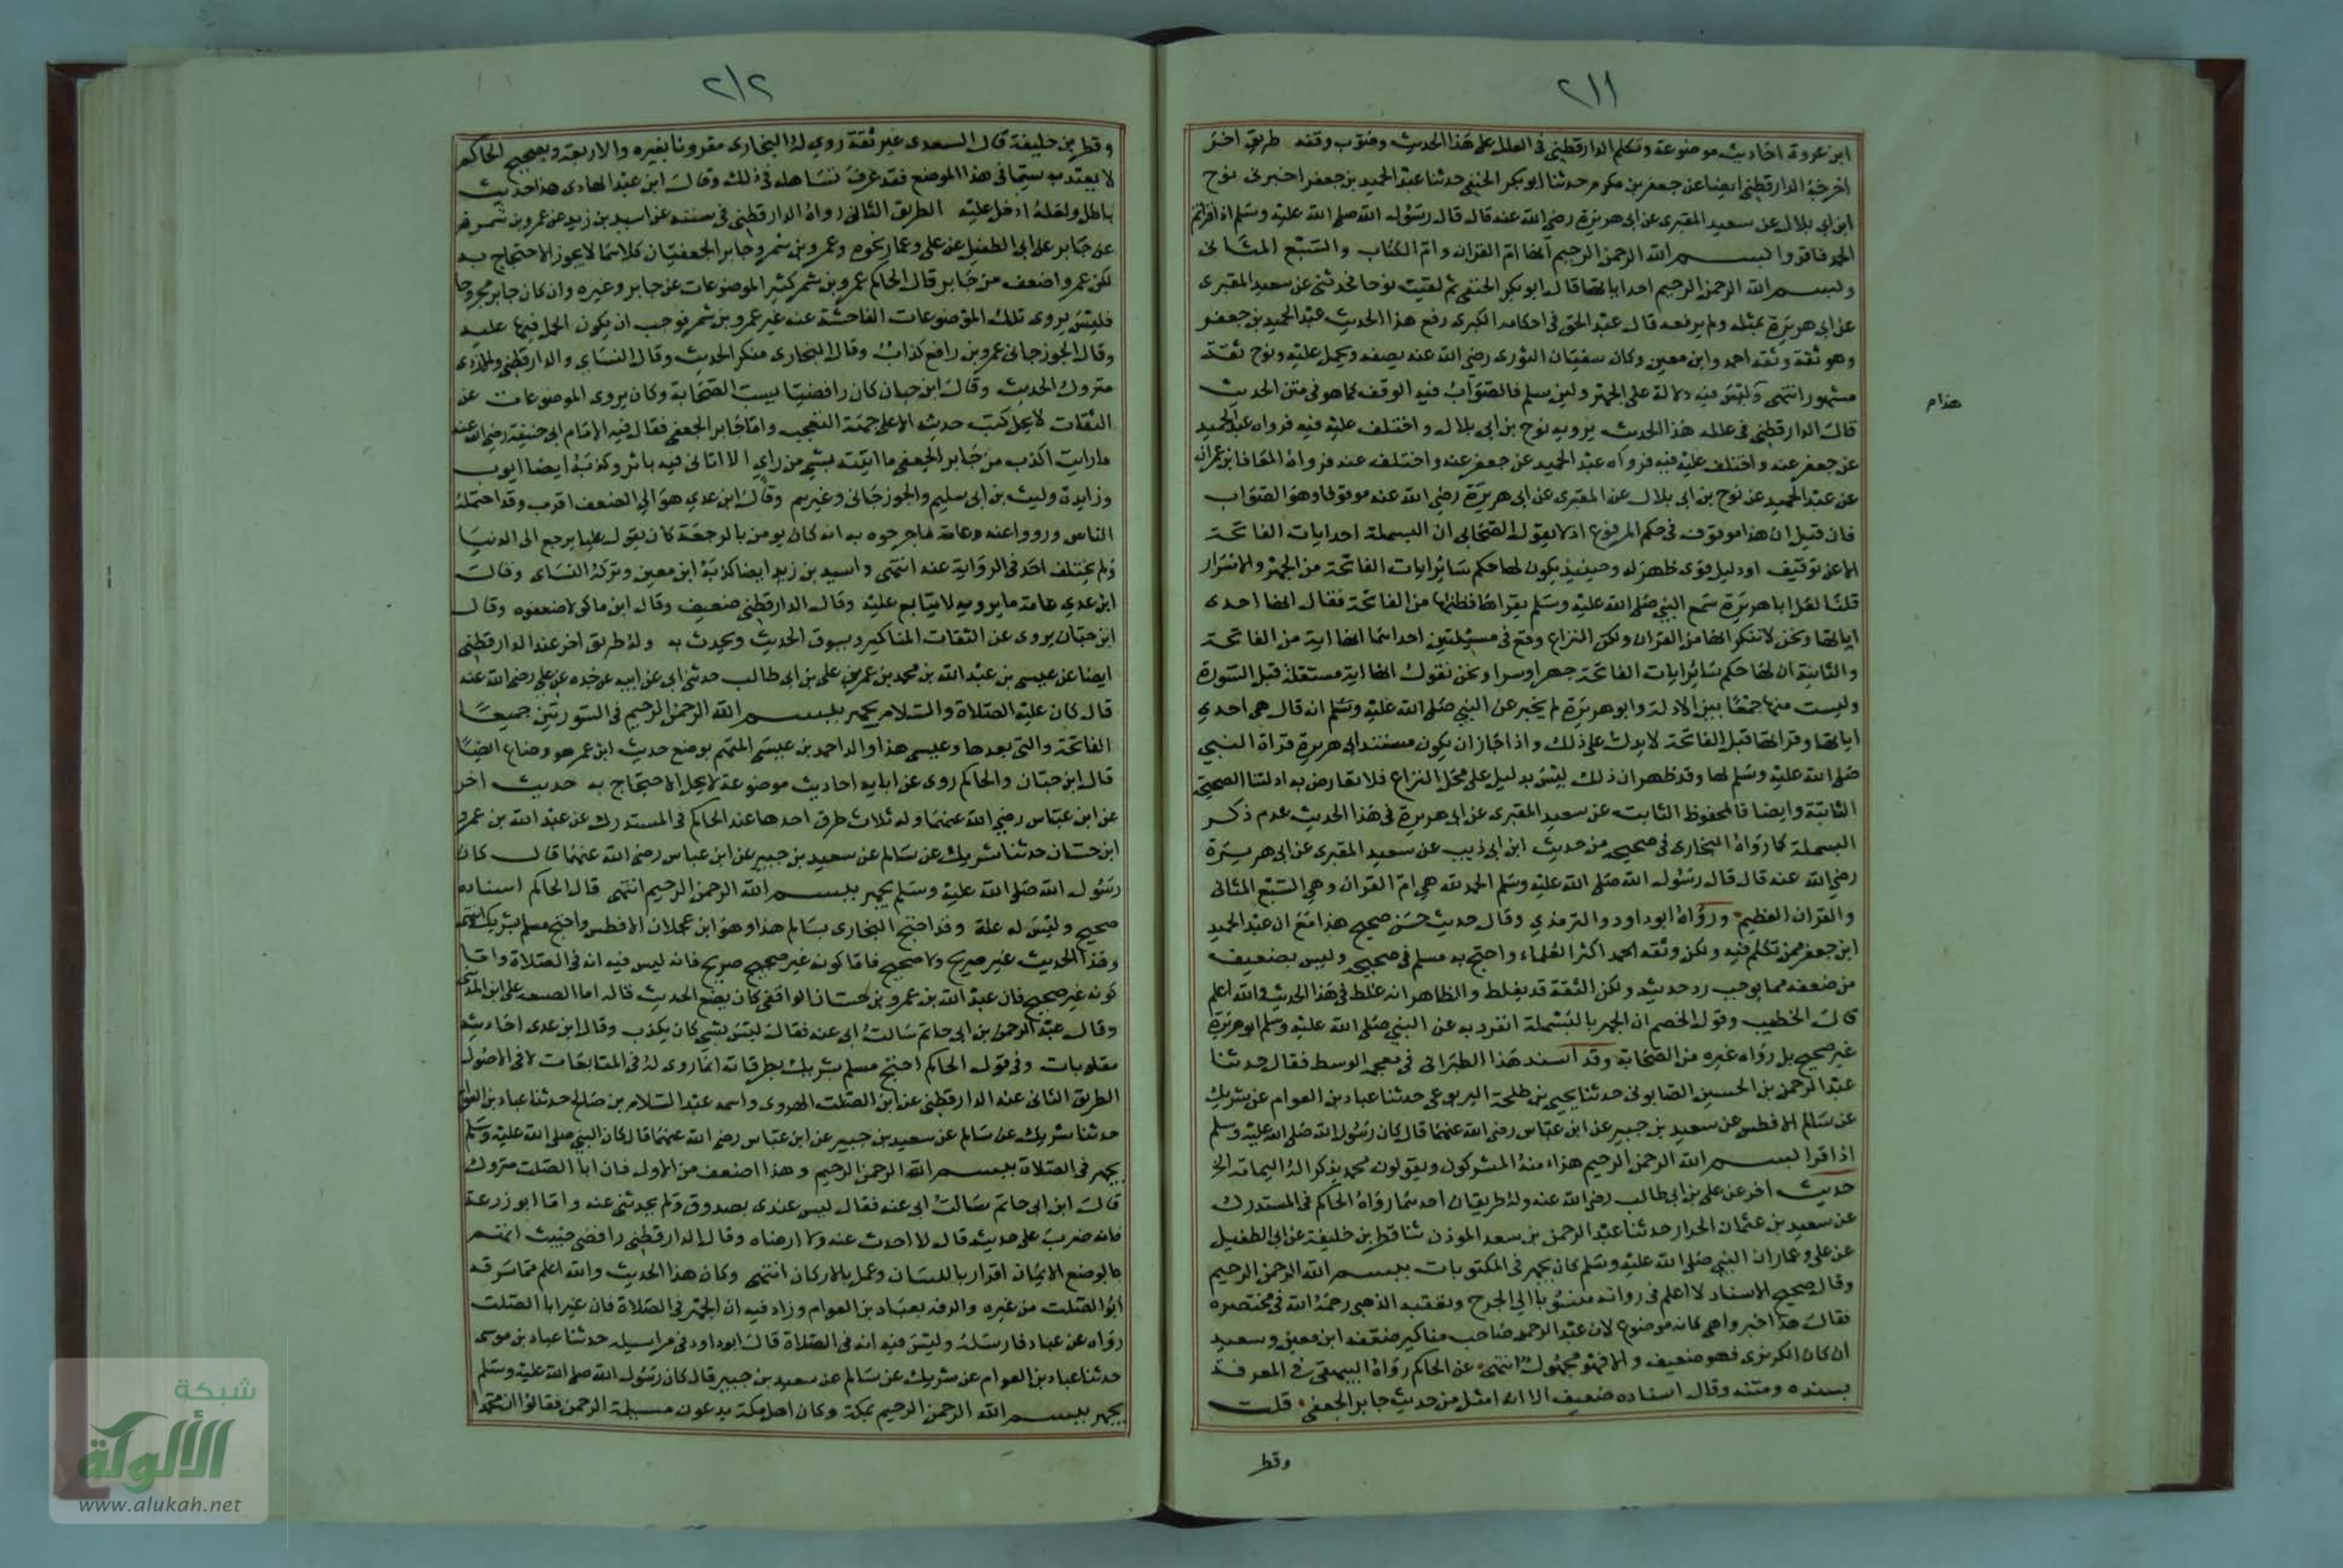 ٢١١
ابن عروة احاديث موضوعة وتكلم الدارقطني في العلل على هذا الحديث وصوب وقفه طريق اخر
اخرجه الدارقطني ايضا عن جعفر بن مكرم حدثنا ابو بكر الحنفي حدثنا عبد الحميد بن جعفر اخبرني نوح
ابن ابي بلال عن سعيد المقبرى عن ابي هريرة رضي الله عنه قال قال رسول الله صلى الله عليه وسلم اذا قراتم
الحمد فاقروا بسم الله الرحمن الرحيم انها ام القران وام الكتاب والسبع المثاني
وبسم الله الرحمن الرحيم احد اياتها قال ابو بكر الحنفي ثم لقيت نوحا فحدثني عن سعيد المقبرى
عن ابي هريرة بمثله ولم يرفعه قال عبد الحق في احكامه الكبرى رفع هذا الحديث عبد الحميد بن جعفر
وهو ثقة وثقه احمد وابن معين وكان سفيان الثورى رضي الله عنه يضعفه ويحمل عليه ونوح ثقة
مشهور انتهى وليس فيه دلالة على الجهر ولئن سلم فالصواب فيه الوقف كما هو في متن الحديث
هذا م
قال الدارقطني في علله هذا الحديث يرويه نوح بن ابي بلال واختلف عليه فيه فرواه عبد الحميد
عن جعفر عنه واختلف عليه فيه فرواه عبد الحميد عن جعفر عنه واختلف عنه فرواه المعافا بن عمران
عن عبد الحميد عن نوح بن ابي بلال عن المقبرى عن ابي هريرة رضي الله عنه موقوفا وهو الصواب
فان قيل ان هذا موقوف في حكم المرفوع اذ لا يقول الصحابي ان البسملة احد ايات الفاتحة
الا عن توقيف او دليل قوى ظهر له وحينيذ يكون لها حكم سائر ايات الفاتحة من الجهر والاسرار
قلنا لعل ابا هريرة سمع النبي صلى الله عليه وسلم يقراها فظنها من الفاتحة فقال انها احدى
اياتها ونحن لا ننكر انها من القران ولكن النزاع وقع في مسئلتين احداهما انها اية من الفاتحة
والثانية ان لها حكم سائر ايات الفاتحة جهرا وسرا ونحن نقول انها اية مستقلة قبل السورة
وليست منها جمعا بين الادلة وابو هريرة لم يخبر عن النبي صلى الله عليه وسلم انه قال هي احدي
اياتها وقراتها قبل الفاتحة لا يدل على ذلك واذا جاز ان يكون مستند ابي هريرة قراة النبي
صلى الله عليه وسلم لها وقد ظهر ان ذلك ليس بدليل على محل النزاع فلا تعارض به ادلتنا الصحيحة
الثابتة وايضا فالمحفوظ الثابت عن سعيد المقبرى عن ابي هريرة في هذا الحديث عدم ذكر
البسملة كما رواه البخارى في صحيحه من حديث ابن ابي ذيب عن سعيد المقبرى عن ابي هريرة
رضي الله عنه قال قال رسول الله صلى الله عليه وسلم الحمد لله هي ام القران وهي السبع المثاني
والقران العظيم ورواه ابو داود والترمذي وقال حديث حسن صحيح هذا مع ان عبد الحميد
ابن جعفر ممن تكلم فيه ولكن وثقه احمد اكثر العلماء واحتج به مسلم في صحيحه وليس بضعيف
من ضعفه مما يوجب رد حديثه ولكن الثقة قد يغلط والظاهر انه غلط في هذا الحديث والله اعلم
قال الخطيب وقول الخصم ان الجهر بالبسملة انفرد به عن النبي صلى الله عليه وسلم ابو هريرة
غير صحيح بل رواه غيره من الصحابة وقد اسند هذا الطبراني في معجمه الوسط فقال حدثنا
عبد الرحمن بن الحسين الصابوني حدثنا يحيى بن طلحة اليربوعي حدثنا عباد بن العوام عن شريك
عن سالم الافطس عن سعيد بن جبير عن ابن عباس رضي الله عنهما قال كان رسول الله صلى الله عليه وسلم
اذا قرا بسم الله الرحمن الرحيم هزا منه المشركون ويقولون محمد يذكر اله اليمامة الخ
حديث اخر عن علي بن ابي طالب رضي الله عنه وله طريقان احدهما رواه الحاكم في المستدرك
عن سعيد بن عثمان الخراز حدثنا عبد الرحمن بن سعد الموذن ثنا قطر بن خليفة عن ابي الطفيل
عن علي وعمار ان النبي صلى الله عليه وسلم كان يجهر في المكتوبات ببسم الله الرحمن الرحيم
وقال صحيح الاسناد لا اعلم في رواته منسوبا الي الجرح وتعقبه الذهبي رحمه الله في مختصره
فقال هذا خبر واهي كانه موضوع لان عبد الرحمن صاحب مناكير ضعفه ابن معين وسعيد
ان كان الكريزى فهو ضعيف والا فهو مجهول انتهى وعن الحاكم رواه البيهقي في المعرفة
بسنده ومتنه وقال اسناده ضعيف الا انه امثل من حديث جابر الجعفي قلت
وقطر
٢١٢
وقطر بن خليفة قال السعدى غير ثقة روى له البخارى مقرونا بغيره والاربعة وتصحيح الحاكم
لا يعتد به سيما في هذا الموضع فقد عرف تساهله في ذلك وقال ابن عبد الهادى هذا حديث
باطل ولعله ادخل عليه الطريق الثاني رواه الدارقطني في سننه عن اسيد بن زيد عن عمرو بن شمر
عن جابر عن ابي الطفيل عن علي وعمار نحوه وعمرو بن شمر وجابر الجعفيان كلاهما لا يجوز الاحتجاج به
لكن عمروا ضعف من جابر قال الحاكم عمرو بن شمر كثير الموضوعات عن جابر وغيره وان كان جابر مجروحا
فليس يروى تلك الموضوعات الفاحشة عنه غير عمرو بن شمر فوجب ان يكون الحمل فيها عليه
وقال الجوزجاني عمرو بن رافع كذاب وقال البخارى منكر الحديث وقال النساي والدارقطني والازدى
متروك الحديث وقال ابن حبان كان رافضيا يسب الصحابة وكان يروى الموضوعات عن
الثقات لا يحل كتب حديثه الا على جهة التعجب واما جابر الجعفي فقال فيه الامام ابي حنيفة رضي الله عنه
مارايت اكذب من جابر الجعفي ما اتيته بشي من راي الا اتاني فيه باثر وكذبه ايضا ايوب
وزايدة وليث بن ابي سليم والجوزجاني وغيرهم وقال ابن عدي هو الي الضعف اقرب وقد احتمله
الناس ورووا عنه وعامة ما جرحوه به انه كان يومن بالرجعة كان يقول عليا يرجع الى الدنيا
ولم يختلف احد في الرواية عنه انتهى واسيد بن زيد ايضا كذبه ابن معين وتركه النساى وقال
ابن عدي عامة ما يرويه لا يتابع عليه وقال الدارقطني ضعيف وقال ابن ماكولا ضعفوه وقال
ابن حبان يروى عن الثقات المناكير ويسوق الحديث ويحدث به وله طريق اخر عند الدارقطني
ايضا عن عيسى بن عبد الله بن محمد بن عمر بن علي بن ابي طالب حدثني ابي عن ابيه عن جده عن علي رضي الله عنه
قال كان عليه الصلاة والسلام يجهر ببسم الله الرحمن الرحيم في السورتين جميعا
الفاتحة والتي بعدها وعيسى هذا والد احمد بن عيسى المتهم بوضع حديث ابن عمر هو وضاع ايضا
قال ابن حبان والحاكم روى عن ابايه احاديث موضوعة لا يحل الاحتجاج به حديث اخر
عن ابن عباس رضي الله عنهما وله ثلاث طرق احدها عند الحاكم في المستدرك عن عبد الله بن عمرو
ابن حسان حدثنا شريك عن سالم عن سعيد بن جبير عن ابن عباس رضي الله عنهما قال كان
رسول الله صلى الله عليه وسلم يجهر ببسم الله الرحمن الرحيم انتهى قال الحاكم اسناده
صحيح وليس له علة وقد احتج البخارى بسالم هذا وهو ابن عجلان الافطس واحتج مسلم بشريك انتهى
وهذا الحديث غير صريح ولا صحيح فاما كونه غير صحيح صريح فانه ليس فيه انه في الصلاة واما
كونه غير صحيح فان عبد الله بن عمرو بن حسان الواقفي كان يضع الحديث قاله امام الصنعة علي ابن المديني
وقال عبد الرحمن بن ابي حاتم سالت ابي عنه فقال ليس بشي كان يكذب وقال ابن عدى احاديثه
مقلوبات وفي قول الحاكم احتج مسلم بشريك نظر فانه انما روى له في المتابعات لا في الاصول
الطريق الثاني عند الدارقطني عن ابن الصلت الهروى واسمه عبد السلام بن صالح حدثنا عباد بن العوام
حدثنا شريك عن سالم عن سعيد بن جبير عن ابن عباس رضي الله عنهما قال كان النبي صلى الله عليه وسلم
يجهر في الصلاة ببسم الله الرحمن الرحيم وهذا اضعف من الاول فان ابا الصلت متروك
قال ابن ابي حاتم سالت ابي عنه فقال ليس عندى بصدوق ولم يحدثني عنه واما ابو زرعة
فانه ضرب على حديثه قال لا احدث عنه ولا ارضاه وقال الدارقطني رافضي خبيث اتهم
بالوضع الايمان اقرار باللسان وعمل بالاركان انتهى وكان هذا الحديث والله اعلم مما سرقه
ابو الصلت من غيره والزقه بعباد بن العوام وزاد فيه ان الجهر في الصلاة فان غير ابا الصلت
رواه عن عباد فارسله وليس فيه انه في الصلاة قال ابو داود في مراسيله حدثنا عباد بن موسى
حدثنا عباد بن العوام عن شريك عن سالم عن سعيد بن جبير قال كان رسول الله صلى الله عليه وسلم
يجهر ببسم الله الرحمن الرحيم بمكة وكان اهل مكة يدعون مسيلمة الرحمن فقالوا ان محمدا
شبكة
الألوكة
www.alukah.net